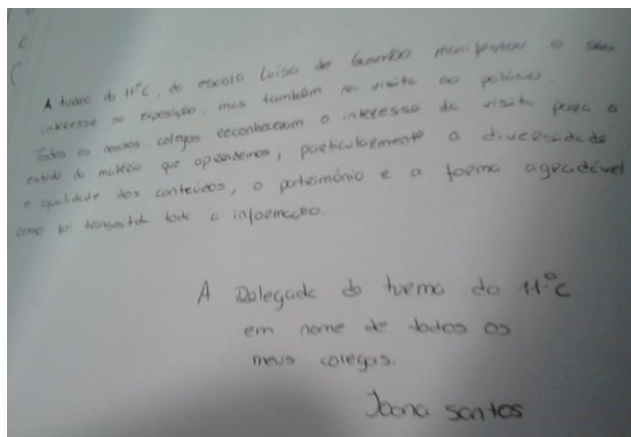 A turma do 11ºC, da escola Luísa de Gusmão manifestou o seu
interesse na exposição, mas também na visita ao palácio.
Todos os nossos colegas reconheceram o interesse da visita para o
estudo da matéria que aprendemos, particularmente a diversidade
e qualidade dos conteúdos, o património e a forma agradável
como foi transmitida toda a informação.
A Delegada da turma do 11ºC
em nome de todos os
meus colegas.
Joana Santos